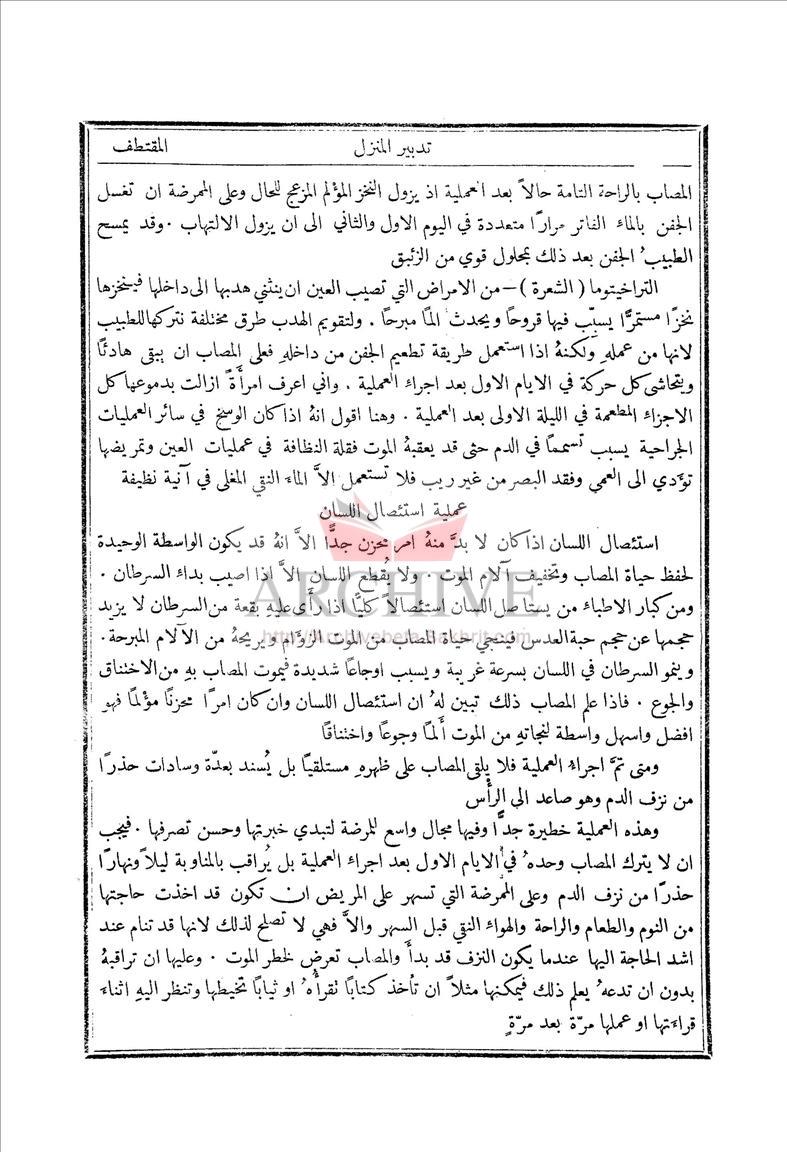 المقتطف
تدبير المنزل
المصاب بالراحة التامة حالاً بعد العملية اذ يزول النخز المؤلم المزعج للحال وعلى الممرضة ان تغسل
الجفن بالماء الفاتر مرارًا متعددة في اليوم الاول والثاني الى ان يزول الالتهاب . وقد يمسح
الطبيبُ الجفن بعد ذلك بمحلول قوي من الزئبق
التراخيتوما ( الشعرة ) — من الامراض التي تصيب العين ان ينثني هدبها الى داخلها فينخزها
نخزًا مستمرًّا يسبّب فيها قروحاً ويحدث المًا مبرحاً . ولتقويم الهدب طرق مختلفة نتركها للطبيب
لانها من عملهِ ولكنهُ اذا استعمل طريقة تطعيم الجفن من داخلهِ فعلى المصاب ان يبقى هادئًا
ويتحاشى كل حركة في الايام الاول بعد اجراء العملية . واني اعرف امرأةً ازالت بدموعها كل
الاجزاء المطعمة في الليلة الاولى بعد العملية . وهنا اقول انهُ اذا كان الوسخ في سائر العمليات
الجراحية يسبب تسممًا في الدم حتى قد يعقبهُ الموت فقلة النظافة في عمليات العين وتمريضها
تؤدي الى العمي وفقد البصر من غير ريب فلا تستعمل الاَّ الماء النقي المغلى في آنية نظيفة
عملية استئصال اللسان
استئصال اللسان اذا كان لا بدَّ منهُ امر محزن جدًّا الاَّ انهُ قد يكون الواسطة الوحيدة
لحفظ حياة المصاب وتخفيف آلام الموت . ولا يُقطع اللسان الاَّ اذا اصيب بداء السرطان .
ومن كبار الاطباء من يستأصل اللسان استئصالاً كليًّا اذا رأى عليهِ بقعة من السرطان لا يزيد
حجمها عن حجم حبة العدس فينجي حياة المصاب من الموت الزؤام ويريحهُ من الآلام المبرحة .
وينمو السرطان في اللسان بسرعة غريبة ويسبب اوجاعًا شديدة فيموت المصاب بهِ من الاختناق
والجوع . فاذا علم المصاب ذلك تبين لهُ ان استئصال اللسان وان كان امرًا محزنًا مؤلمًا فهو
افضل واسهل واسطة لنجاتهِ من الموت ألمًا وجوعًا واختناقًا
ومتى تمَّ اجراءُ العملية فلا يلقى المصاب على ظهرهِ مستلقيًا بل يُسند بعدّة وسادات حذرًا
من نزف الدم وهو صاعد الى الرأس
وهذه العملية خطيرة جدًّا وفيها مجال واسع للمرضة لتبدي خبرتها وحسن تصرفها . فيجب
ان لا يترك المصاب وحدهُ في الايام الاول بعد اجراء العملية بل يُراقب بالمناوبة ليلاً ونهارًا
حذرًا من نزف الدم وعلى الممرضة التي تسهر على المريض ان تكون قد اخذت حاجتها
من النوم والطعام والراحة والهواء النقي قبل السهر والاَّ فهي لا تصلح لذلك لانها قد تنام عند
اشد الحاجة اليها عندما يكون النزف قد بدأَ والمصاب تعرض لخطر الموت . وعليها ان تراقبهُ
بدون ان تدعهُ يعلم ذلك فيمكنها مثلاً ان تأخذ كتابًا تقرأُهُ او ثيابًا تخيطها وتنظر اليهِ اثناء
قراءتها او عملها مرّة بعد مرّةٍ
ARCHIVE